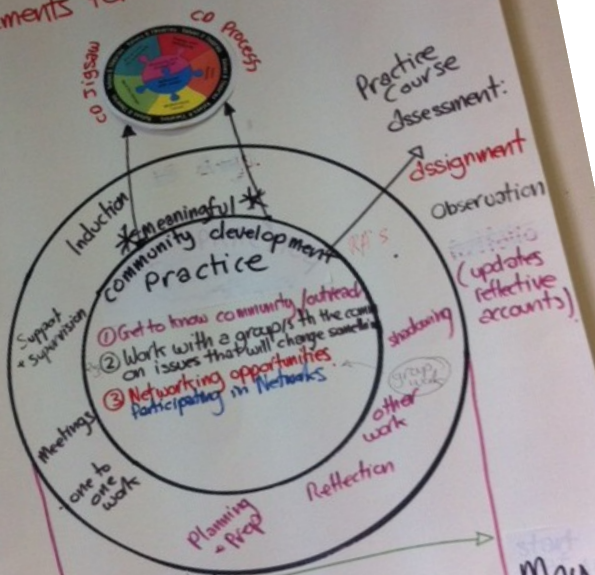 CD Jigsaw
CD Process
Practice
Course
Assessment:
Assignment
Observation
(updates
reflective
accounts)
Induction
*meaningful*
community development
Practice
① Get to know community/outreach
② Work with a group/s in the
on issues that will change
③ Networking opportunities
Participating in Networks
Support
+ Supervision
Meetings
one to
one
work
Planning
+ Prep
Reflection
other
work
group
work
shadowing
RA's
start
May